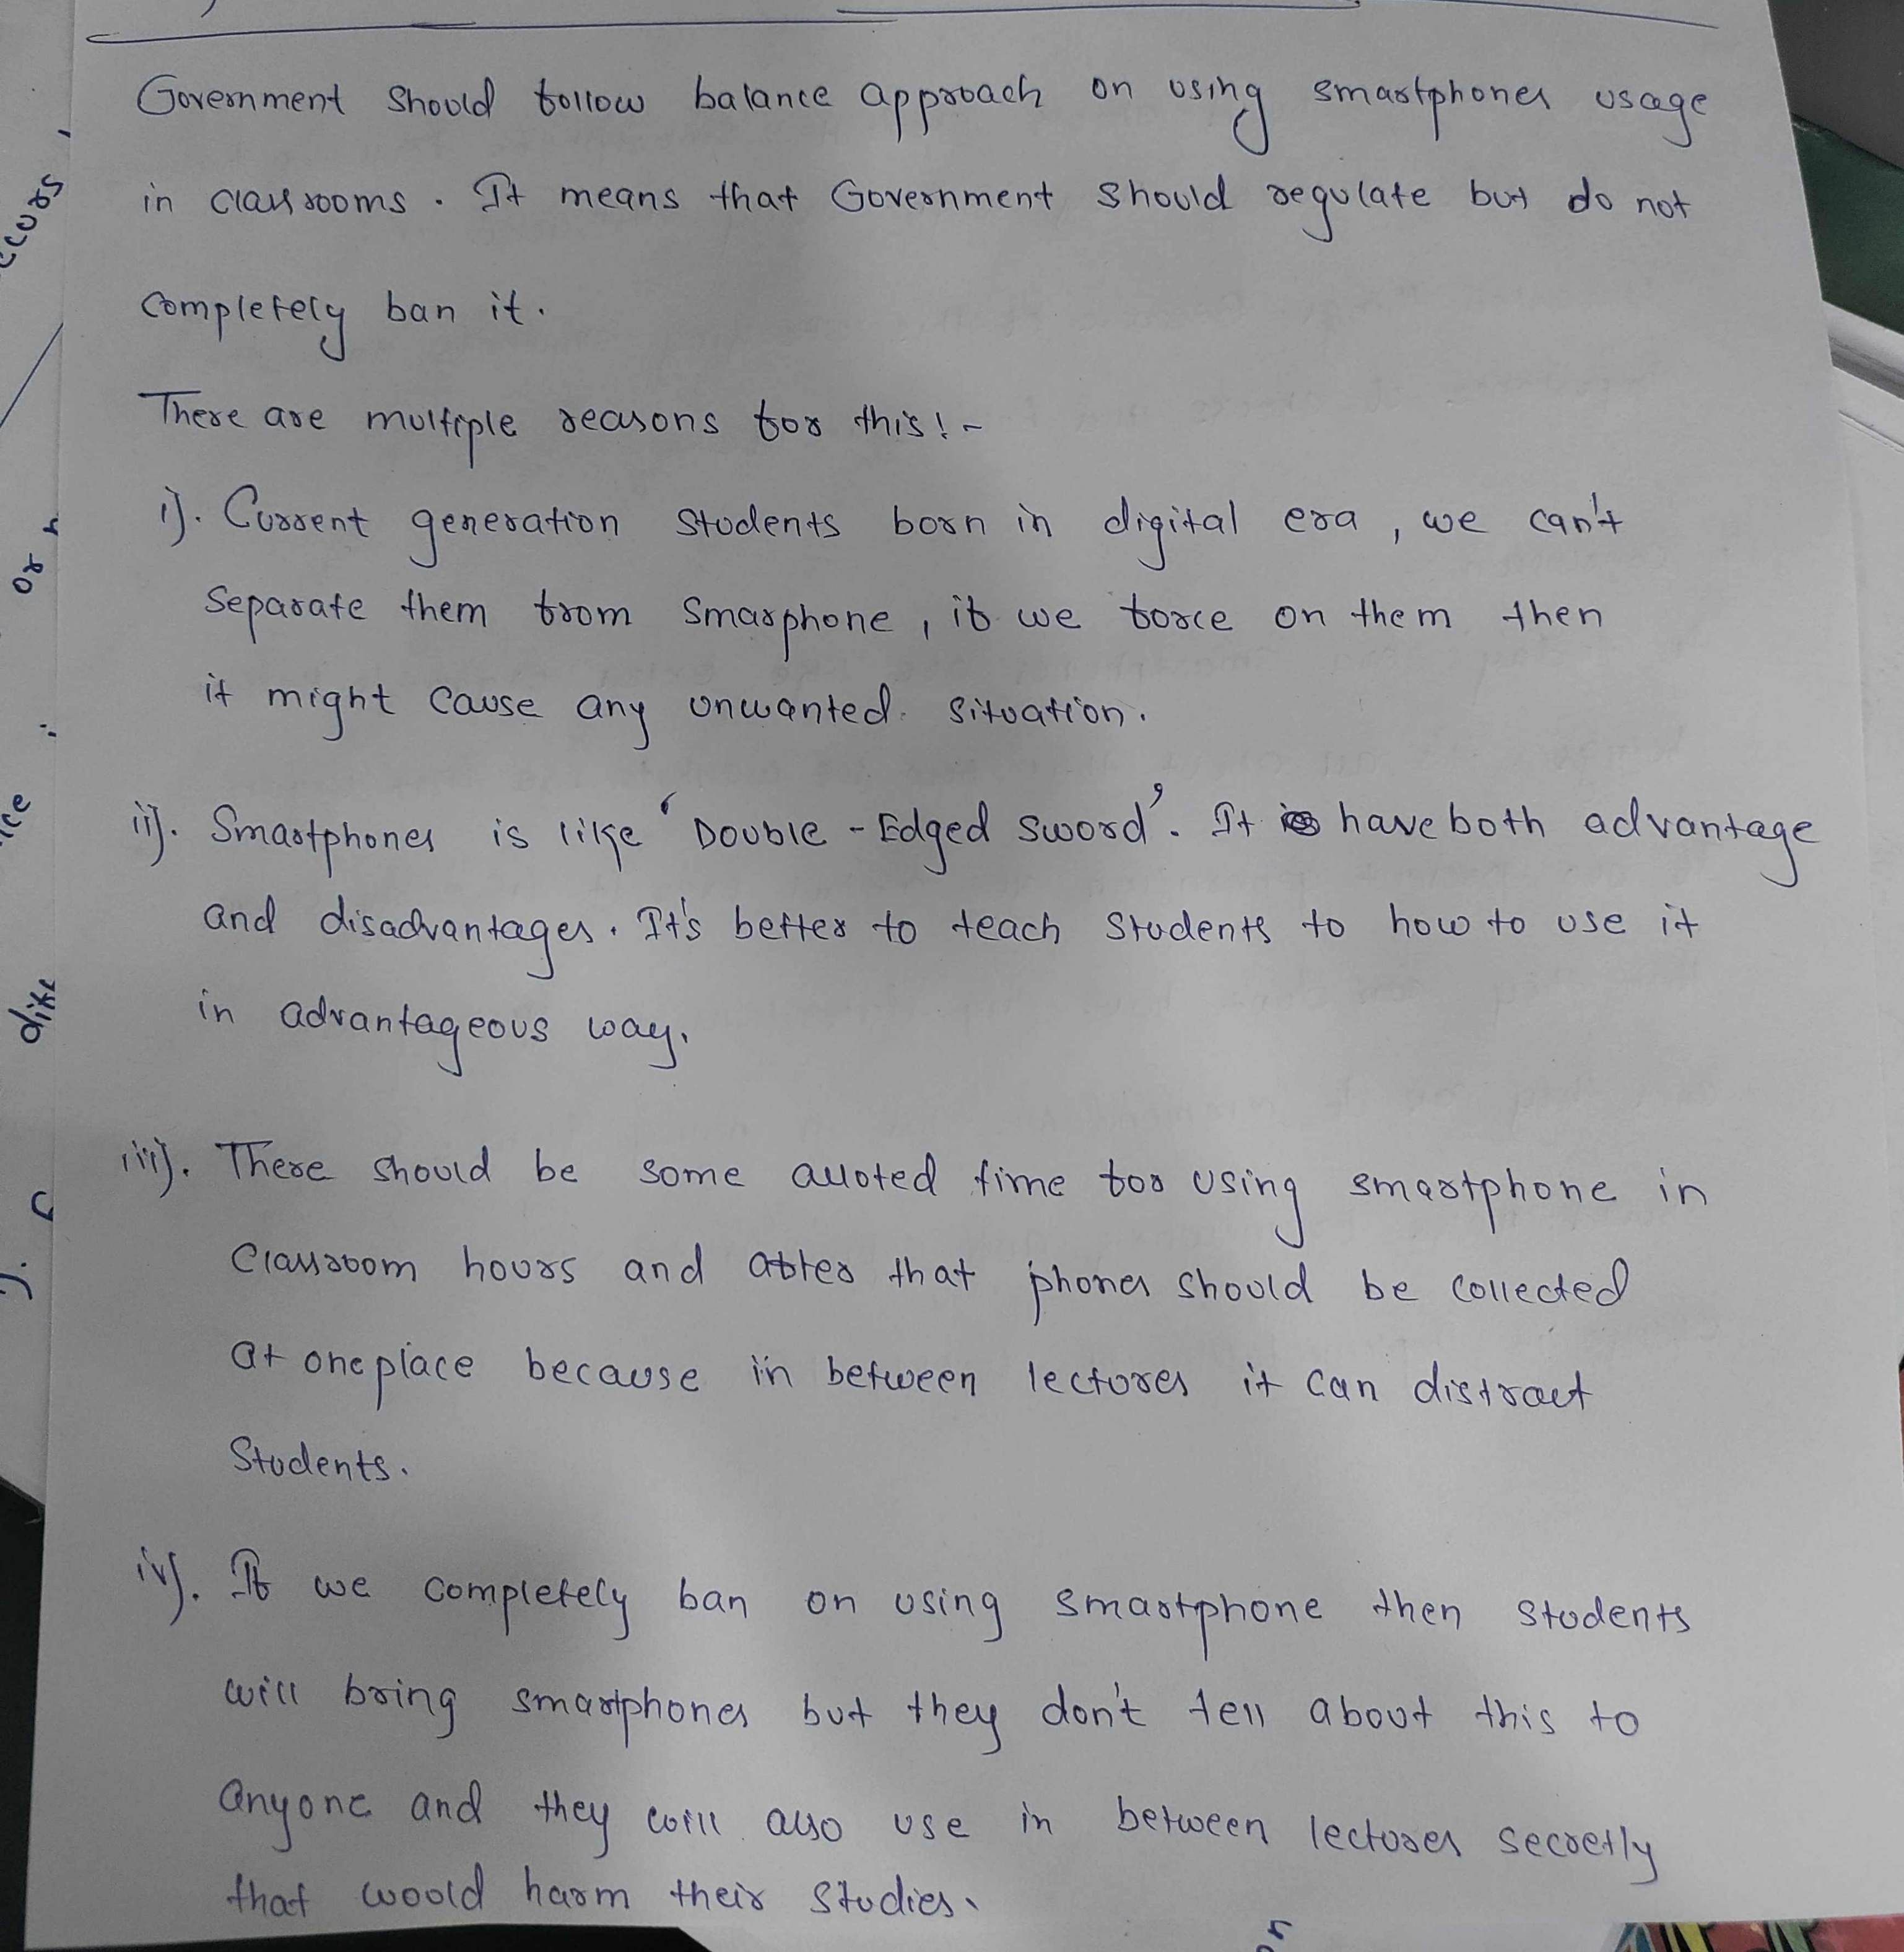 Government should follow balance approach on using smartphones usage
in classrooms. It means that Government should regulate but do not
completely ban it.
There are multiple reasons for this! -
i). Current generation students born in digital era, we can't
separate them from smarphone, if we force on them then
it might cause any unwanted. situation.
ii). Smartphones is like 'Double-Edged sword'. It have both advantage
and disadvantages. It's better to teach students to how to use it
in advantageous way.
iii). There should be some alloted time for using smartphone in
classroom hours and after that phones should be collected
at one place because in between lectures it can distract
students.
iv). If we completely ban on using smartphone then students
will bring smartphones but they don't tell about this to
anyone and they will also use in between lectures secretly
that would harm their studies.
ccurs,
or
dike